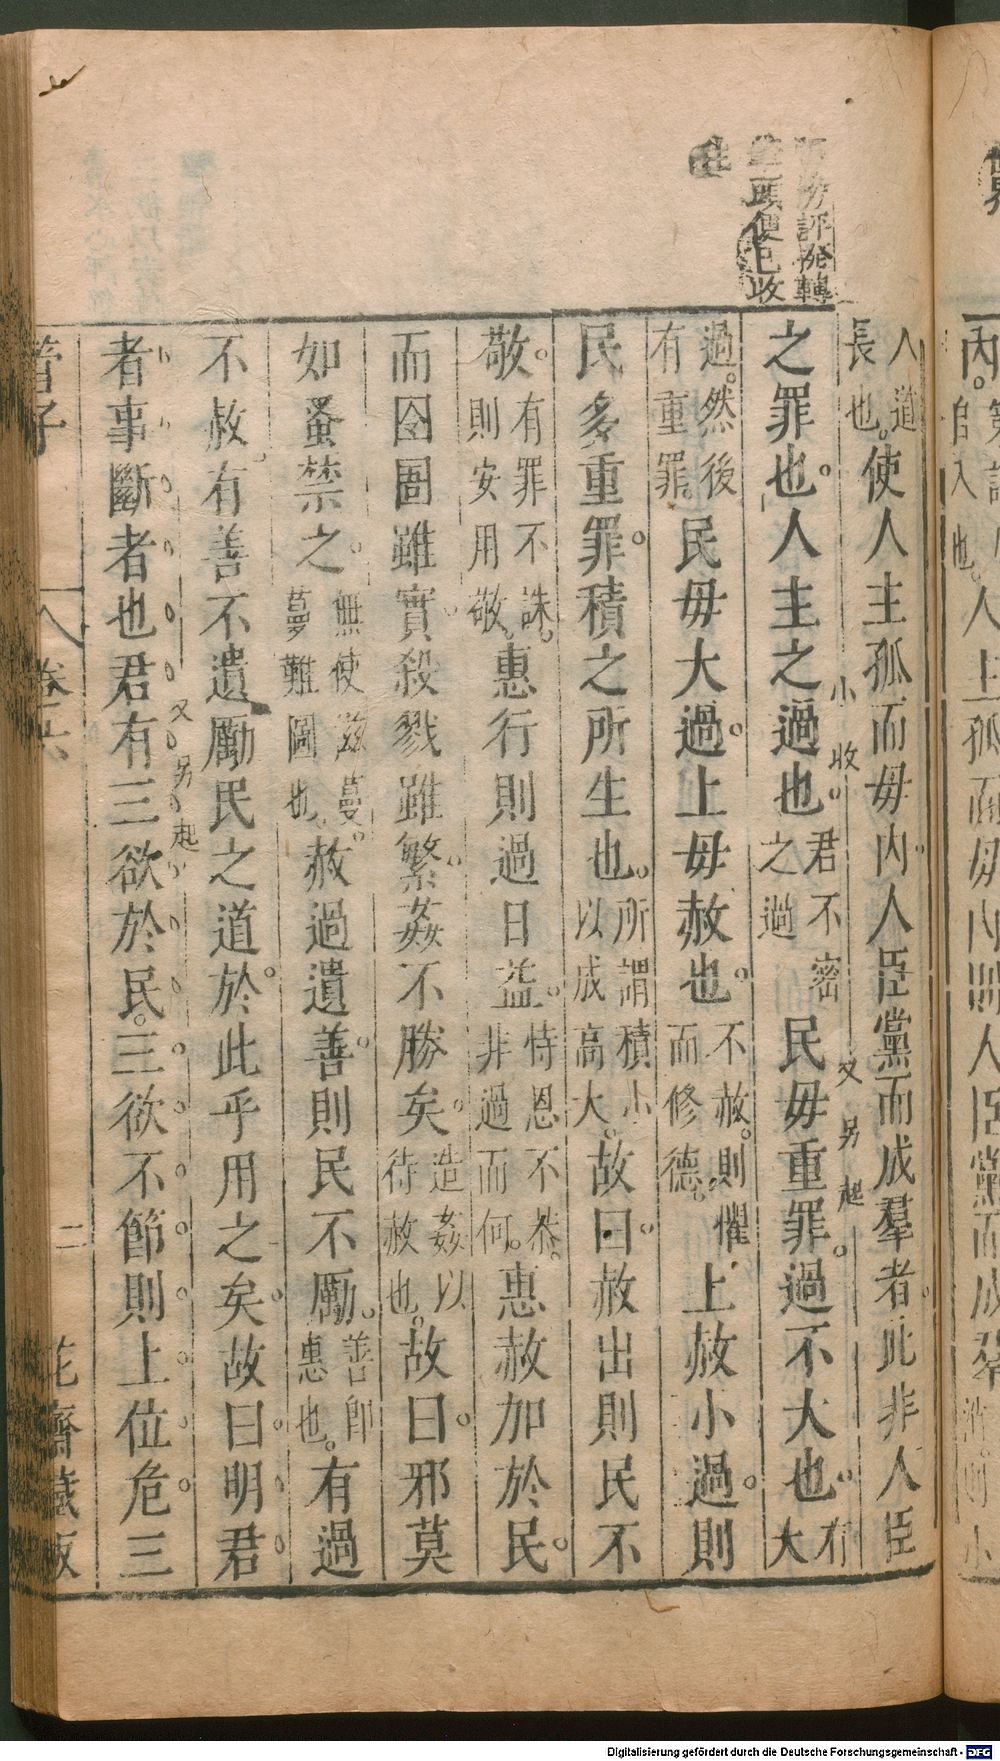 人主孤而毋內則人臣黨而成羣
評 轉
頭便已收
人道長也。使人主孤而毋內人臣黨而成羣者此非人臣
小收
又另起
之罪也人主之過也君不密之過民毋重罪過不大也有大
過。然後有重罪。民毋大過上毋赦也不赦。則懼而修德。上赦小過則
民多重罪積之所生也所謂積小以成高大。故曰赦出則民不
敬有罪不誅。則安用敬。惠行則過日益恃恩不恭。非過而何。惠赦加於民
而囹圄雖實殺戮雖繁姦不勝矣造姦以待赦也。故曰邪莫
如蚤禁之無使滋蔓。蔓難圖也。赦過遺善則民不勵善即惠也。有過
不赦有善不遺勵民之道於此乎用之矣故曰明君
又另起
者事斷者也君有三欲於民三欲不節則上位危三
管子 卷六 二 花齋藏板
Digitalisierung gefördert durch die Deutsche Forschungsgemeinschaft - DFG